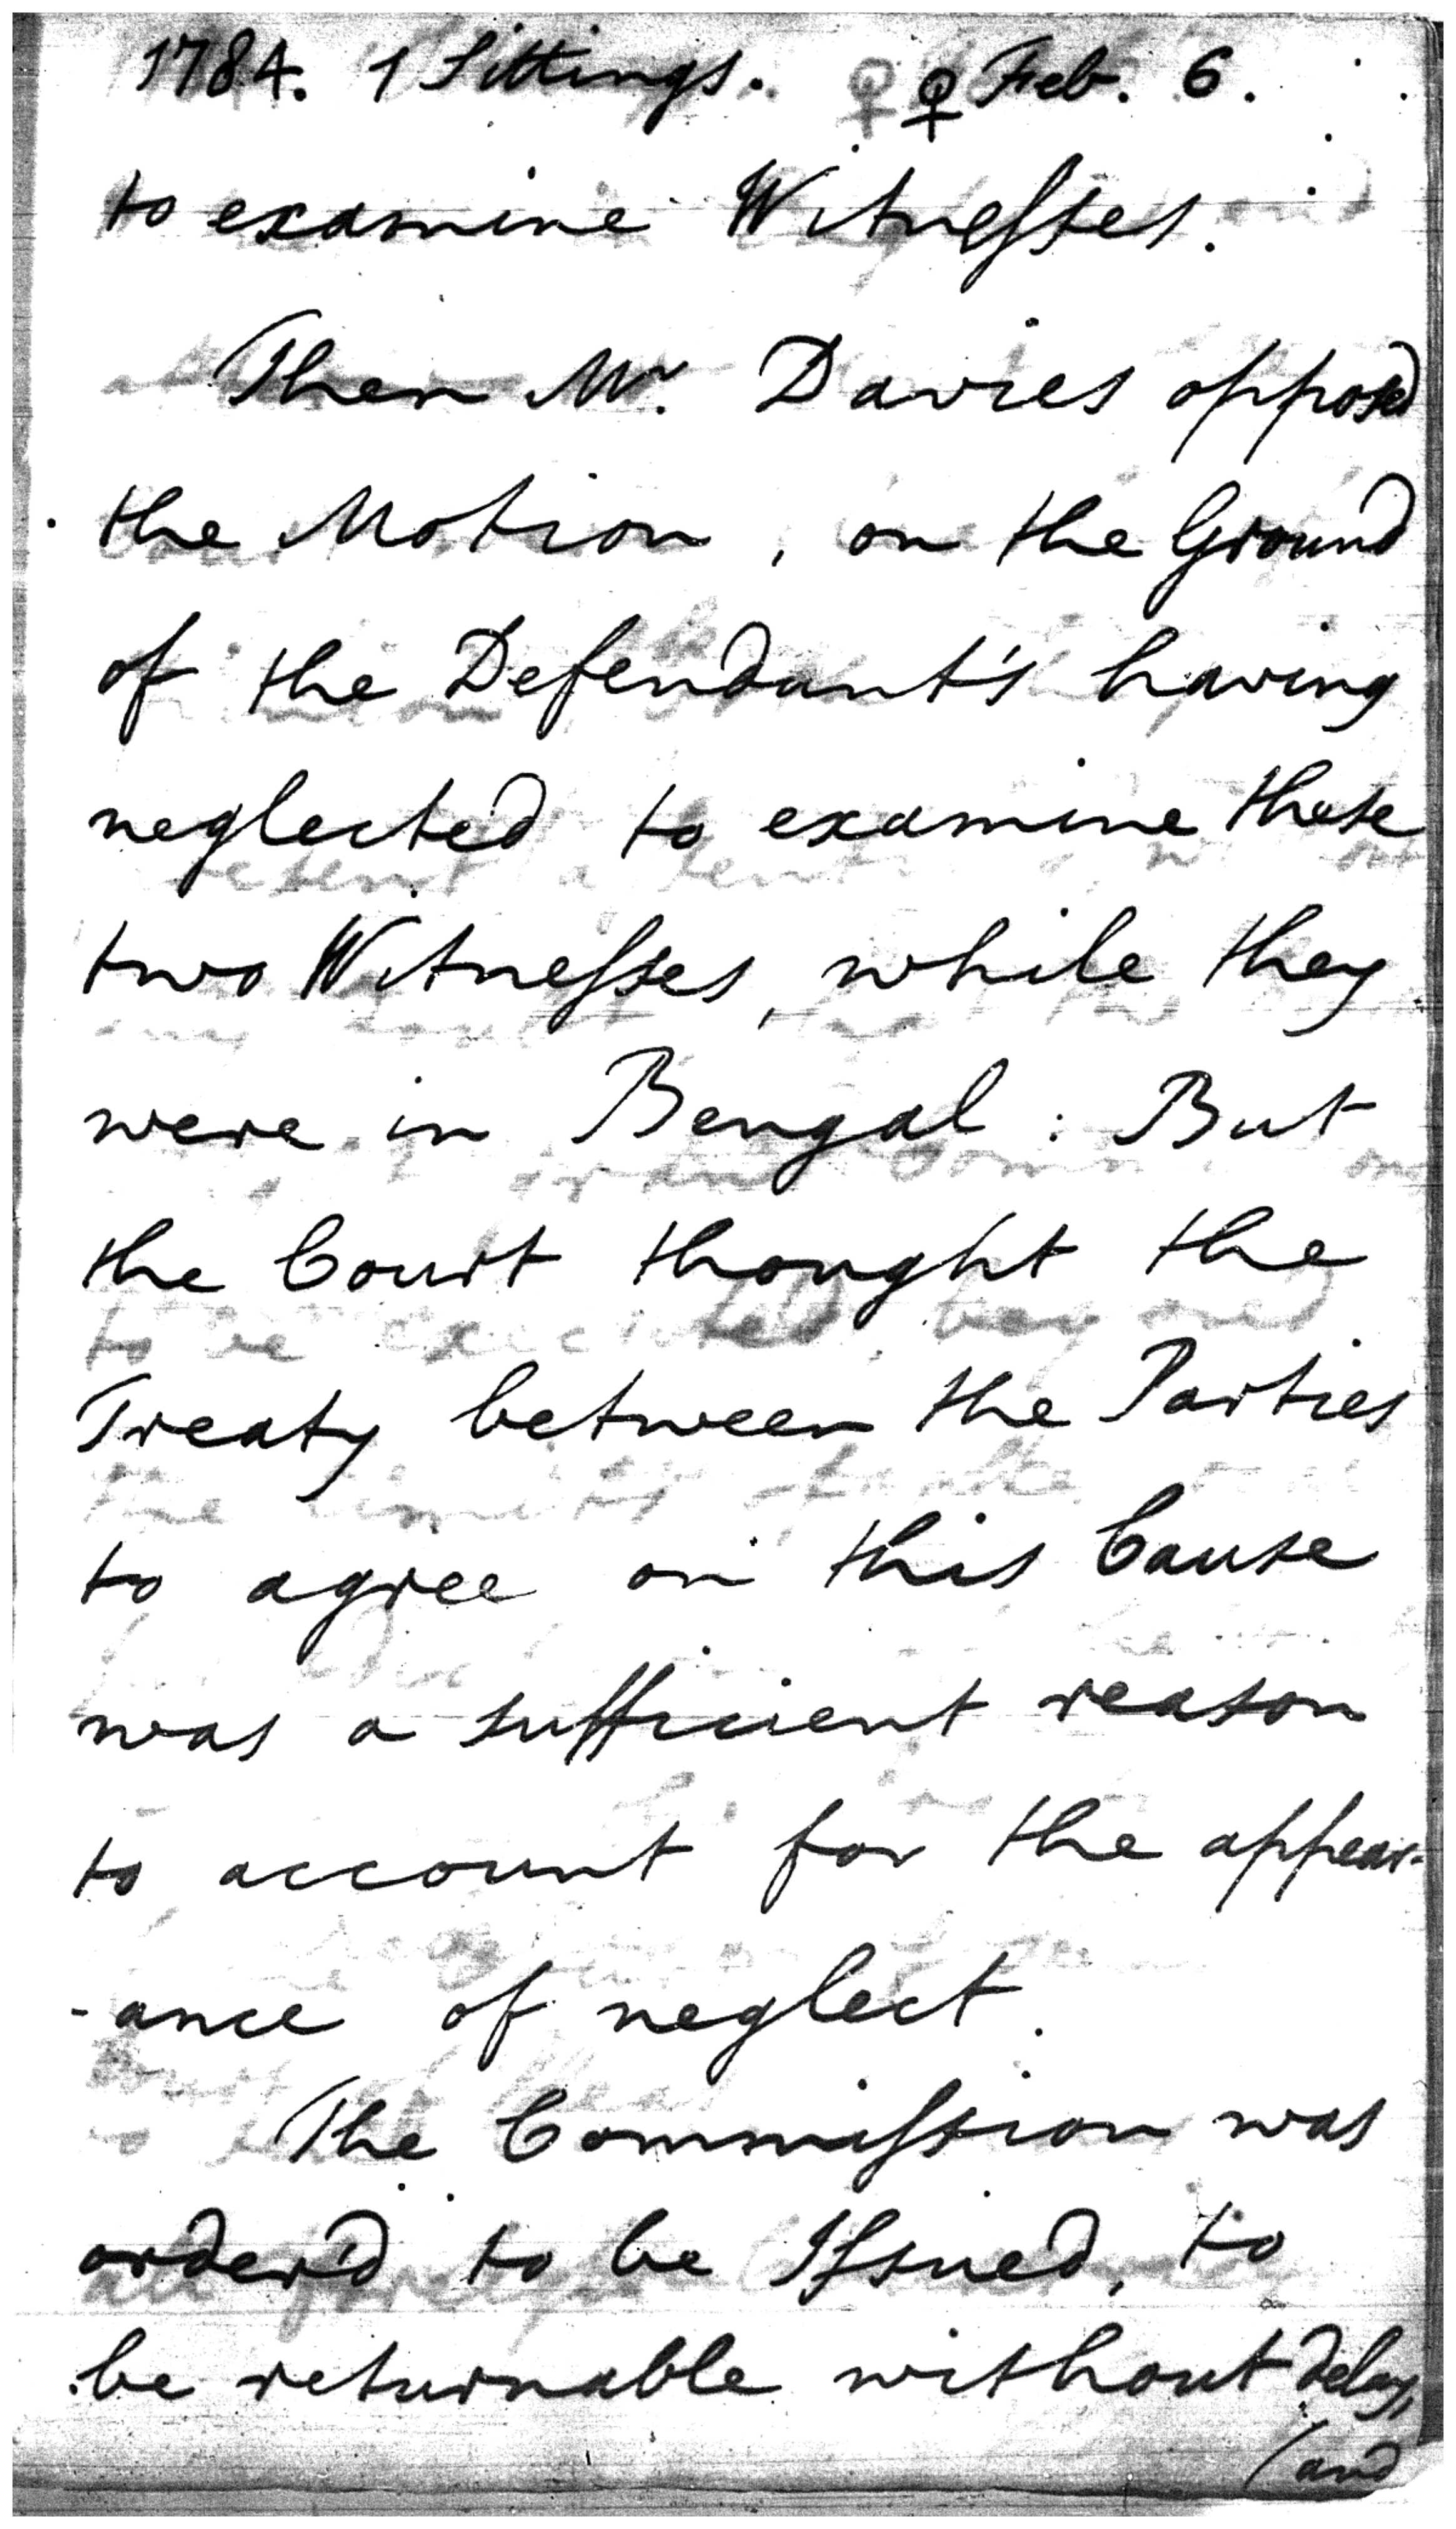 1784. 1 Sittings. ♀ ♀ Feb. 6.
to examine Witneſses.
Then Mr. Davies opposed
the Motion, on the Ground
of the Defendant's having
neglected to examine these
two Witneſses, while they
were in Bengal: But
the Court thought the
Treaty between the Parties
to agree on this Cause
was a sufficient reason
to account for the appear-
-ance of neglect.
The Commiſsion was
order'd to be Iſsued, to
be returnable without delay,
(and